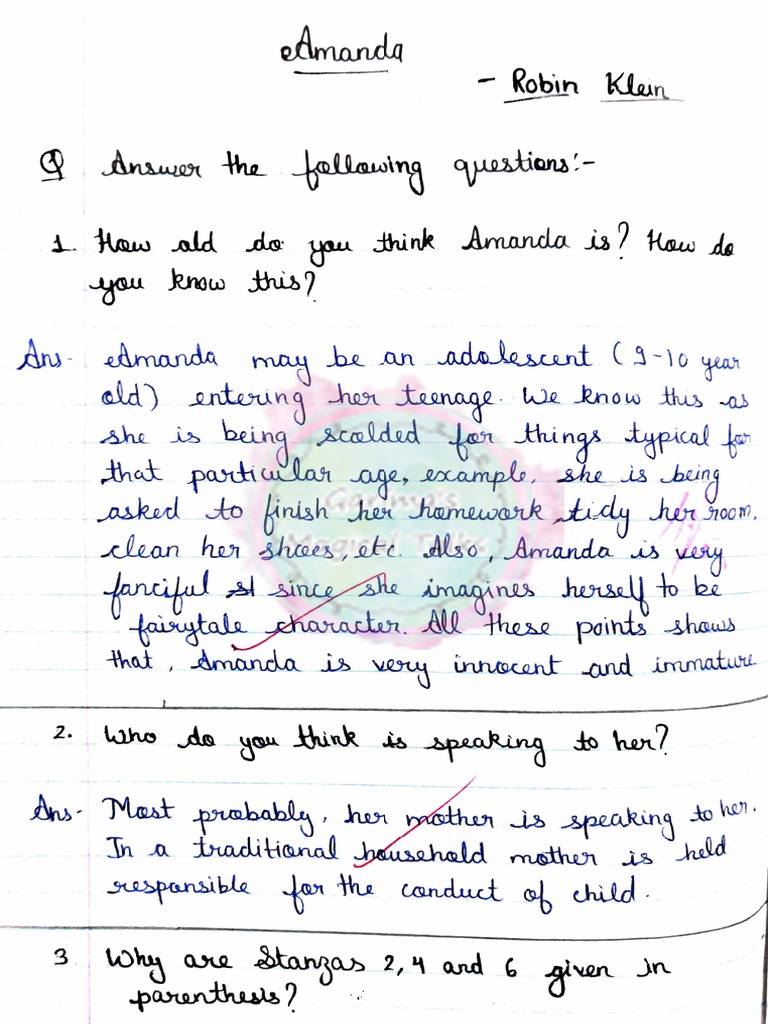 Amanda
- Robin Klein
Q Answer the following questions:-
1. How old do you think Amanda is? How do
you know this?
Ans- Amanda may be an adolescent (9-10 year
old) entering her teenage. We know this as
she is being scolded for things typical for
that particular age, example, she is being
asked to finish her homework, tidy her room,
clean her shoes, etc. Also, Amanda is very
fanciful since she imagines herself to be
fairytale character. All these points shows
that, Amanda is very innocent and immature
2. Who do you think is speaking to her?
Ans- Most probably, her mother is speaking to her.
In a traditional household mother is held
responsible for the conduct of child.
3 Why are Stanzas 2, 4 and 6 given in
parenthesis?